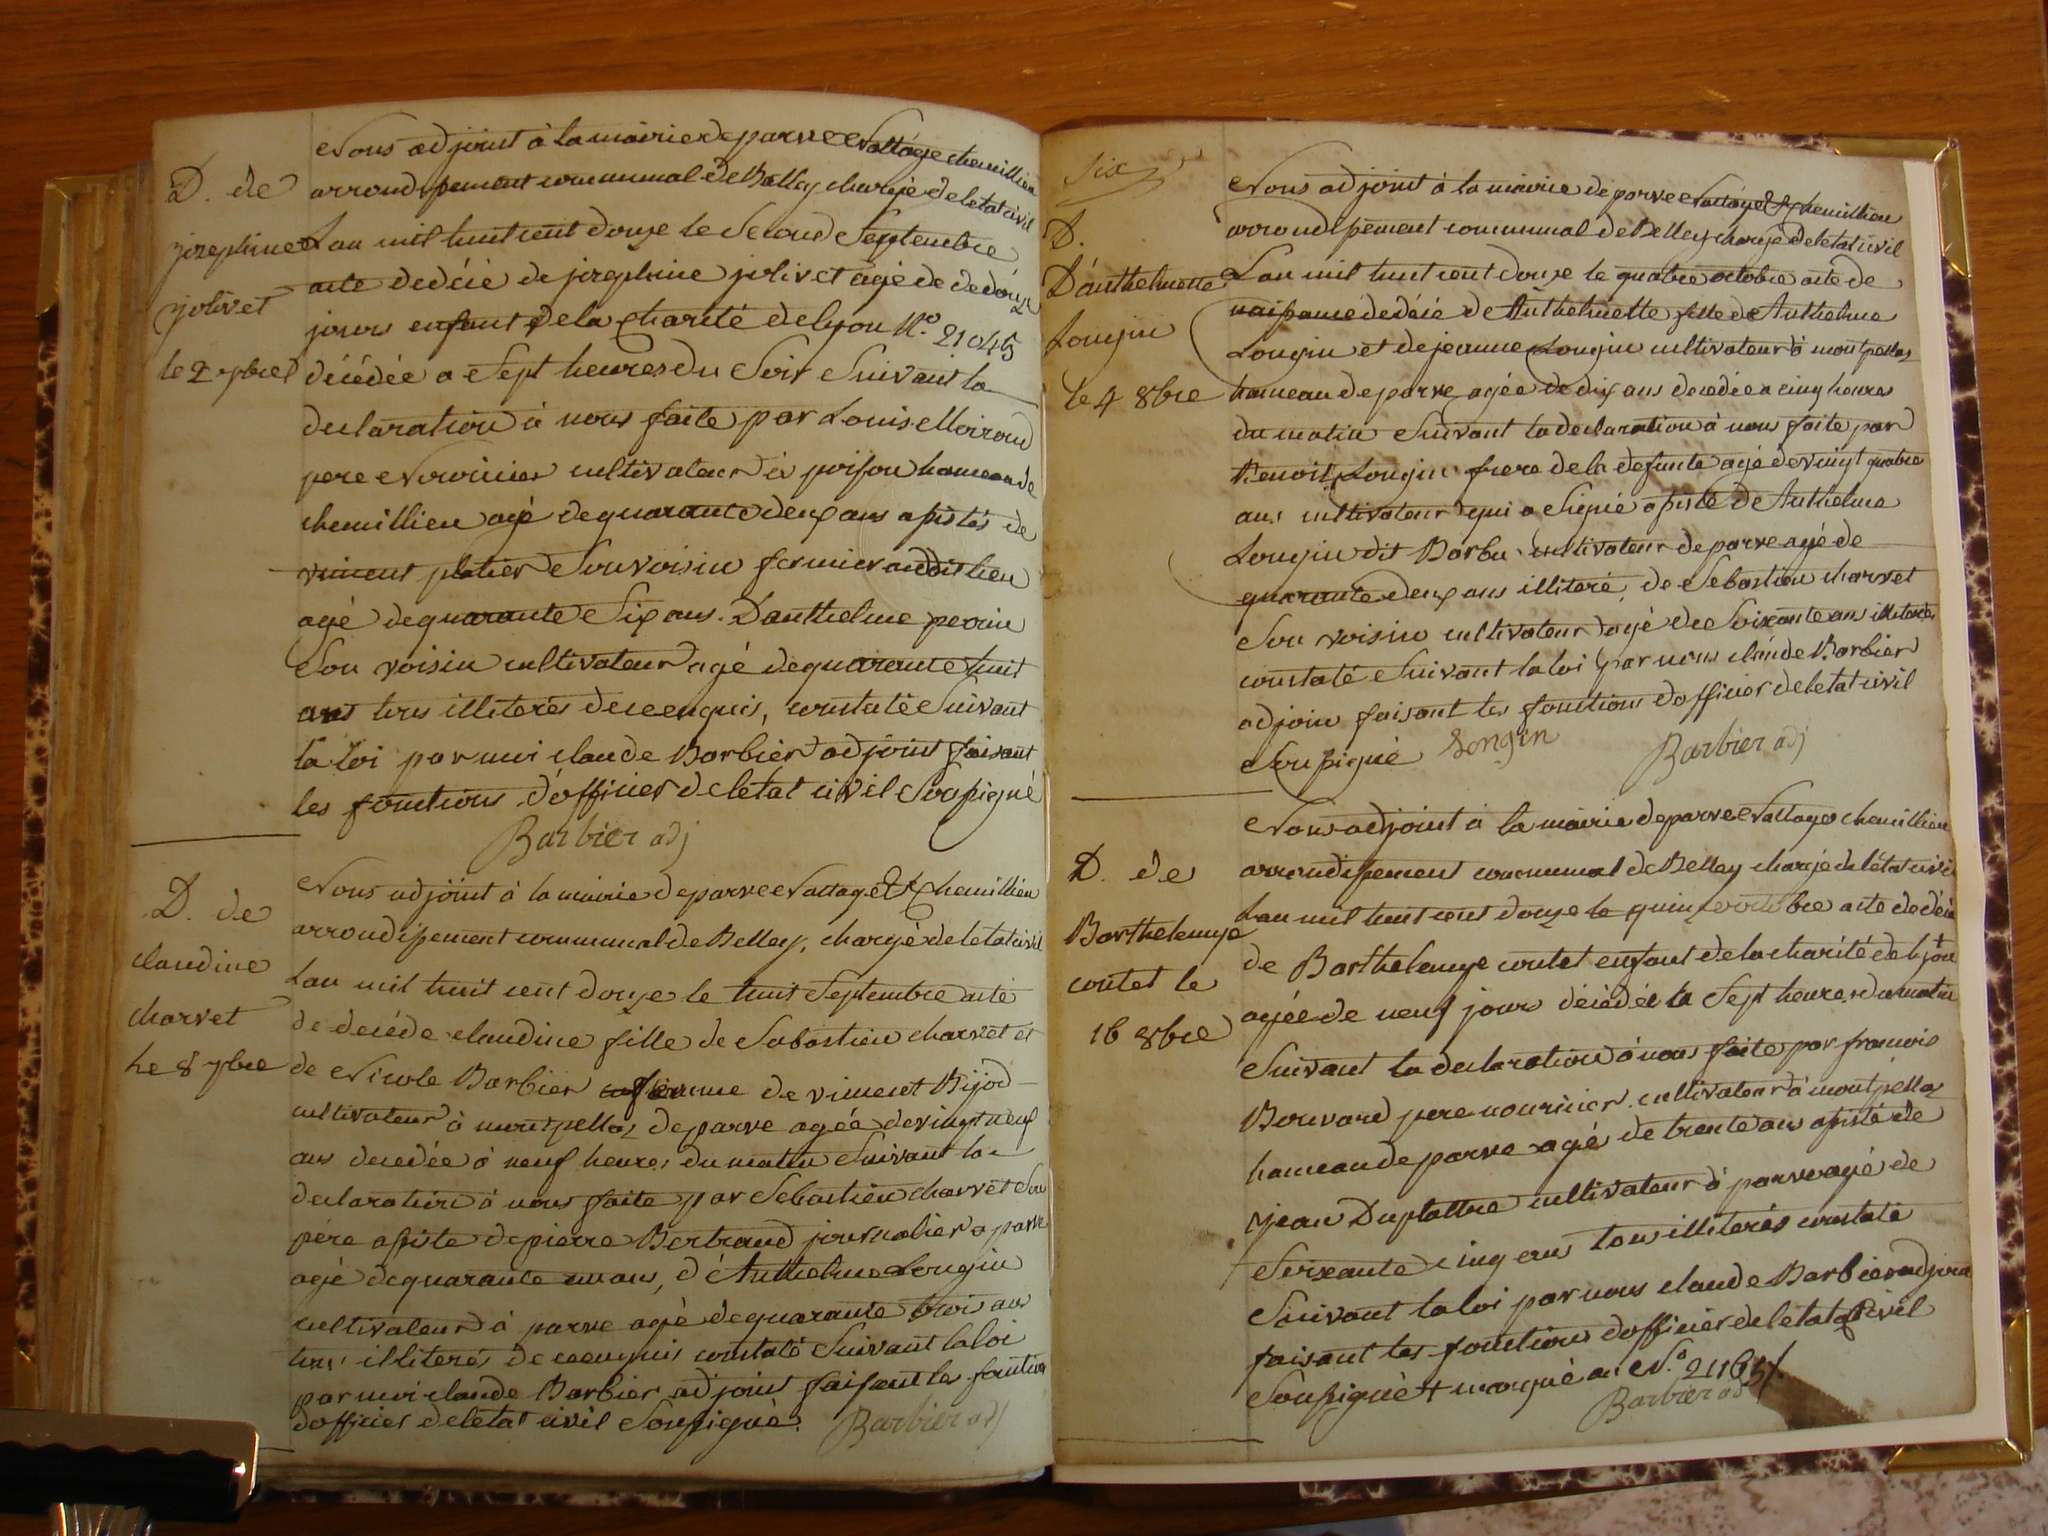 D. de
josephine
jolivet
le 2 7bre
Nous adjoint à la mairie de parve Nattage chemillieu
arrondissement communal de Belley chargé de letat civil
Lan mil huit cent douze le Second Septembre
acte dedécé de josephine jolivet agé de dedouze
jours enfant de la charité de lyon N.o 21045
décédée a Sept heures du Soir Suivant la
declaration à nous faite par Louis Moiroud
pere Nouricier cultivateur à poisou hameau de
chemillieu agé de quarante deux ans assistés de
vincent platier Son voisin fermier audit lieu
agé de quarante Six ans. D'anthelme perrin
Son voisin cultivateur agé de quarante huit
ans tous illiterés de ce enquis, constaté Suivant
la loi par moi claude Barbier adjoint faisant
les fonctions d'officier de letat civil Soussigné
Barbier adj
D. de
claudine
charvet
le 8 7bre
Nous adjoint à la mairie de parve Nattage & Chemillieu
arrondissement communal de Belley, chargé de letat civil
Lan mil huit cent douze le huit Septembre acte
de decéde claudine fille de Sabastien charvet et
de Nicole Barbier femme de vincent Bijod
cultivateur à montpellaz de parve agée de vingt neuf
ans decedée à neuf heures du matin Suivant la
declaration à nous faite par Sebastien charvet Son
pére assisté de pierre Bertrand journalier a parve
agé de quarante un ans, d'Anthelme Longin
cultivateur à parve agé de quarante trois ans
tous illiterés de ce enquis constaté Suivant la loi
par moi claude Barbier adjoint faisant les fonctions
dofficier de létat civil Soussigné. Barbier adj
Six
D.
D'anthelmette
Longin
le 4 8bre
Nous adjoint à la mairie de parve Nattage & chemillieu
arrondissement communal de Belley chargé de letat civil
Lan mil huit cent douze le quatre octobre acte de
naissance dedécé de Anthelmette fille de Anthelme
Longin et de jeanne Longin cultivateur à montpellaz
hameau de parve agée de dix ans decedée a cinq heures
du matin Suivant la declaration à nous faite par
Benoit Longin frere de la defunte agé de vingt quatre
ans cultivateur qui a Signé assisté de Anthelme
Longin dit Barbu cultivateur de parve agé de
quarante deux ans illiteré, de Sebastien charvet
Son voisin cultivateur agé de Soixante ans illiterés
constaté Suivant la loi par nous claude Barbier
adjoin faisant les fonctions dofficier de letat civil
Soussigné Longin Barbier adj
D. de
Barthelemye
contet le
16 8bre
Nous adjoint à la mairie de parve Nattages chemillieu
arrondissement communal de Belley chargé de létat civil
Lan mil huit cent douze le quinze octobre acte dedécé
de Barthelemye contet enfant de la charité de lyon +
agée de neuf jours décédée la Sept heures du matin
Suivant la declaration à nous faite par francois
Bouvard pere nouricier cultivateur à montpellaz
hameau de parve agé de trente ans assisté de
jean Duplattre cultivateur à parve agé de
Soixante cinq ans tous illiterés constaté
Suivant la loi par nous claude Barbier adjoint
faisant les fonctions dofficier de létat civil
Soussigné + marqué au N.o 21165
Barbier adj